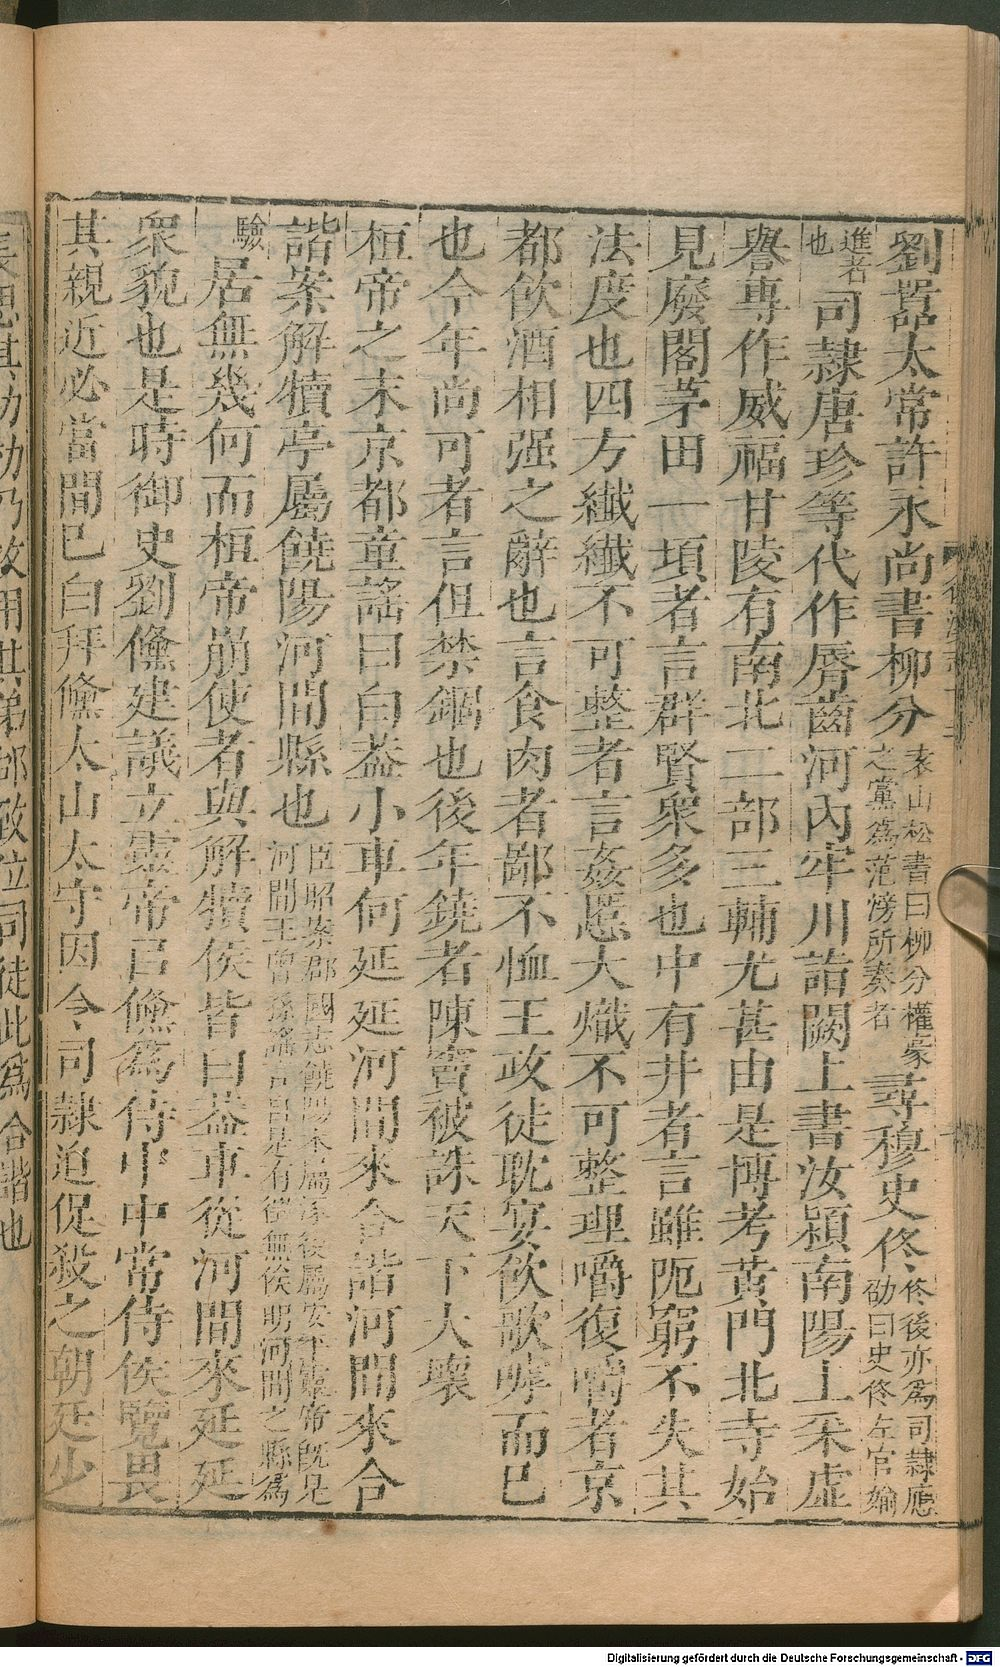 劉囂太常許永尚書柳分袁山松書曰柳分權豪之黨爲范滂所奏者尋穆史佟佟後亦爲司隸應劭曰史佟左官媮
進者也司隸唐珍等代作脣齒河內牢川詣闕上書汝潁南陽上采虛
譽專作威福甘陵有南北二部三輔尤甚由是博考黃門北寺始
見廢閣茅田一頃者言群賢衆多也中有井者言雖阨窮不失其
法度也四方纖纖不可整者言姦慝大熾不可整理嚼復嚼者京
都飲酒相强之辭也言食肉者鄙不恤王政徒耽宴飲歌呼而已
也今年尚可者言但禁錮也後年鐃者陳竇被誅天下大壞
桓帝之末京都童謠曰白葢小車何延延河間來合諧河間來合
諧案解犢亭屬饒陽河間縣也臣昭案郡國志饒陽本屬涿後屬安平靈帝旣是河間王曾孫謠言自是有徵無俟明河間之縣爲
驗居無幾何而桓帝崩使者與解犢侯皆白葢車從河間來延延
衆貌也是時御史劉儵建議立靈帝㠯儵爲侍中中常侍侯覽畏
其親近必當間己白拜儵太山太守因令司隸迫促殺之朝廷少
長思其功効乃拔用其弟郃致位司徒此爲合諧也
Digitalisierung gefördert durch die Deutsche Forschungsgemeinschaft - DFG